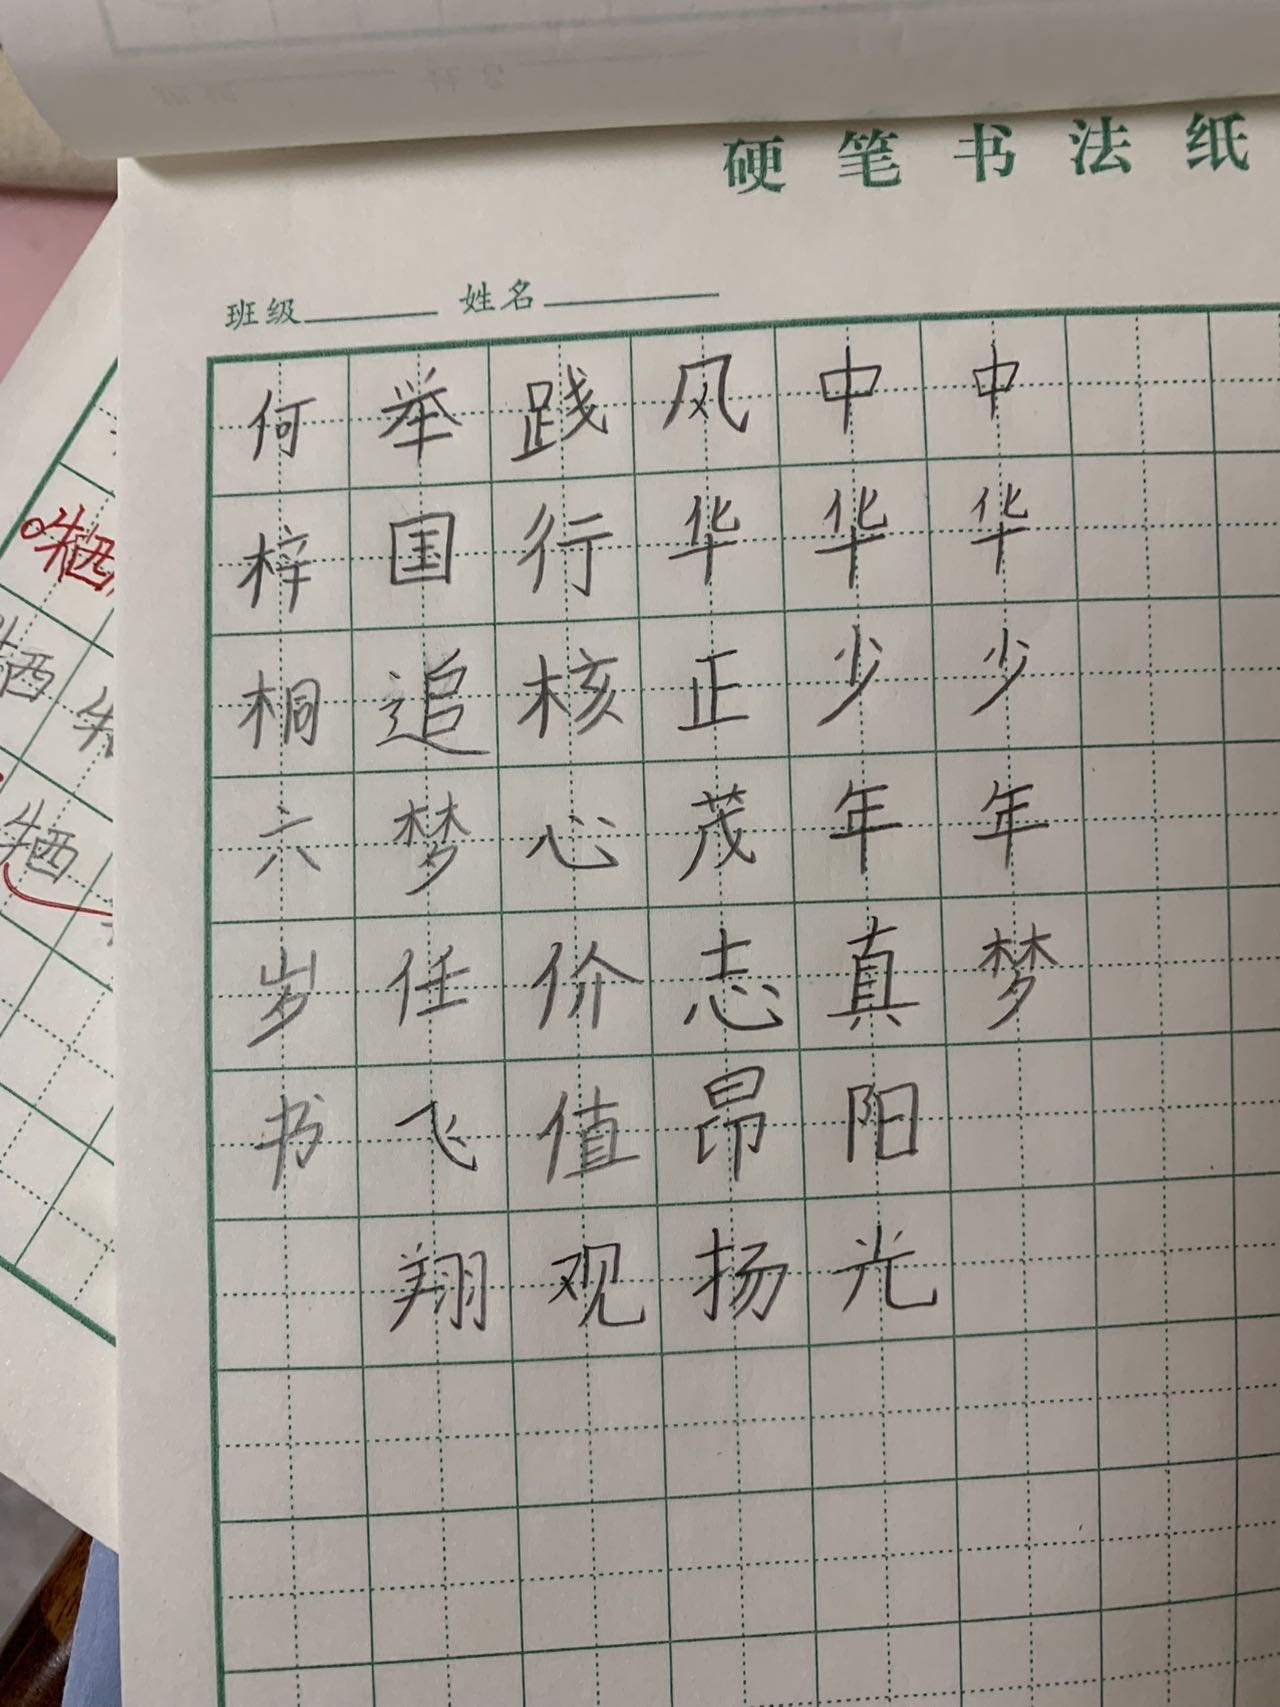 硬笔书法纸
班级 姓名
中华少年梦
中华少年真阳光
风华正茂志昂扬
践行核心价值观
举国追梦任飞翔
何梓桐六岁书